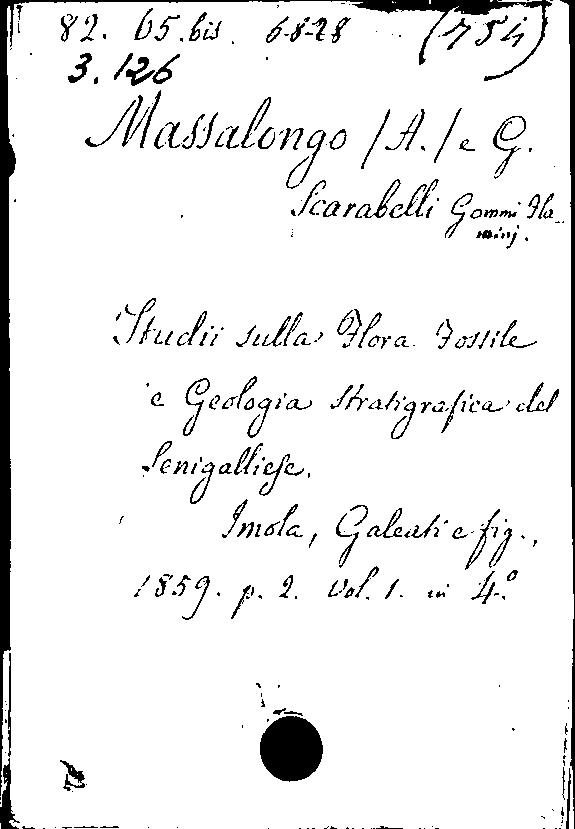 82. 65.bis. 6-8-28 (754)
3.126
Massalongo /A./ e G.
Scarabelli Gommi Fla-
minj.
Studii sulla Flora Fossile
e Geologia stratigrafica del
Senigalliese.
Imola, Galeati e fig.,
1859. p. 2. Vol. 1. in 4.º